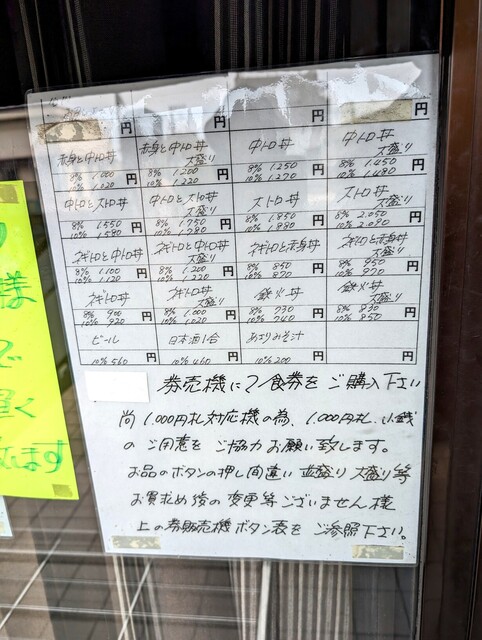 円 円 円 円
赤身と中トロ丼 赤身と中トロ丼 大盛り 中トロ丼 中トロ丼 大盛り
8% 1.000 8% 1.200 8% 1.250 8% 1.450
10% 1.020 円 10% 1.220 円 10% 1.270 円 10% 1.480 円
中トロとストロ丼 中トロとストロ丼 大盛り ストロ丼 ストロ丼 大盛り
8% 1.550 8% 1.750 8% 1.850 8% 2.050
10% 1.580 円 10% 1.780 円 10% 1.880 円 10% 2.090 円
ネギトロと中トロ丼 ネギトロと中トロ丼 大盛り ネギトロと赤身丼 ネギトロと赤身丼 大盛り
8% 1.100 8% 1.200 8% 850 8% 950
10% 1.120 円 10% 1.220 円 10% 870 円 10% 970 円
ネギトロ丼 ネギトロ丼 大盛り 鉄火丼 鉄火丼 大盛り
8% 900 8% 1.000 8% 730 8% 830
10% 920 円 10% 1.020 円 10% 740 円 10% 850 円
ビール 日本酒1合 あさりみそ汁
10% 560 円 10% 460 円 10% 200 円 円
券売機にて食券をご購入下さい
尚1.000円札対応機の為、1.000円札、小銭
のご用意をご協力お願い致します。
お品のボタンの押し間違い並盛り大盛り等
お買求め後の変更等ございません様
上の券販売機ボタン表をご参照下さい。
様
で
置く
ます